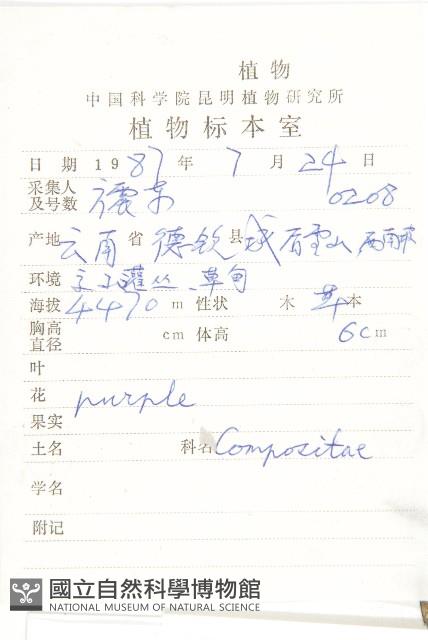 植物
中国科学院昆明植物研究所
植物标本室
日期 1987年 7月 24日
采集人及号数 0208
产地 云南省 德钦县 雪山 西南坡
环境 灌丛、草甸
海拔 4470 m 性状 木 草本
胸高直径 cm 体高 6cm
叶
花 purple
果实
土名 科名 Compositae
学名
附记
國立自然科學博物館
NATIONAL MUSEUM OF NATURAL SCIENCE